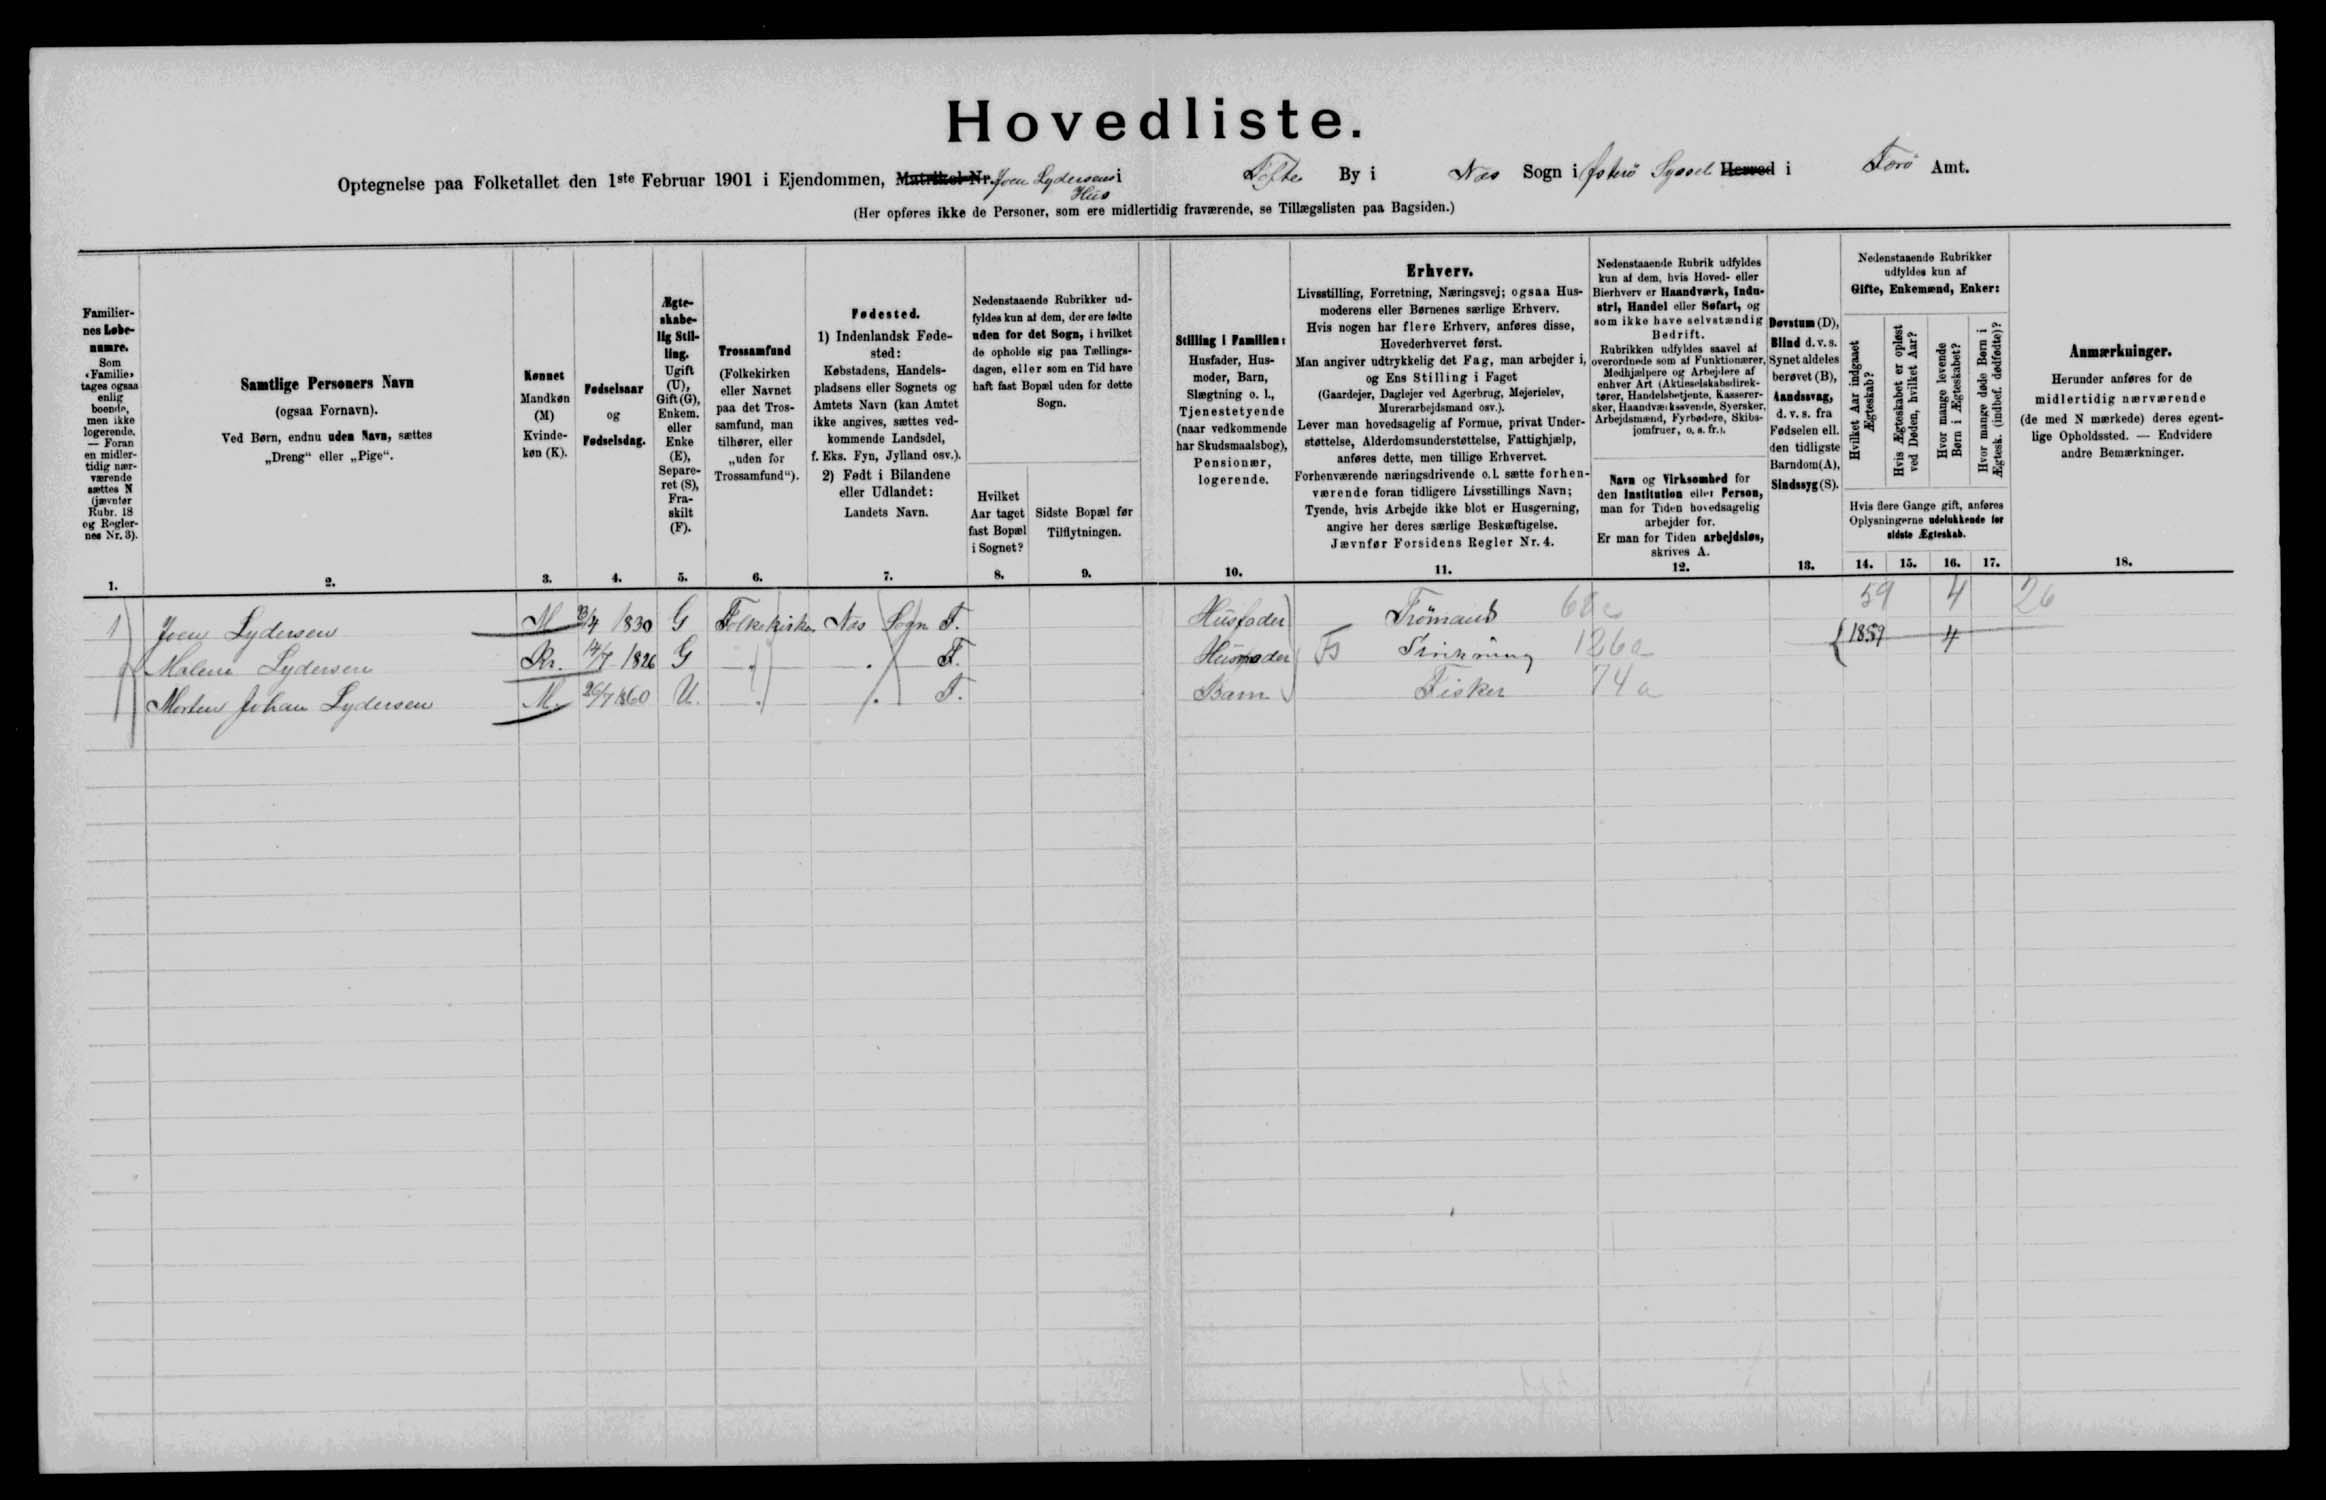 Hovedliste.
Optegnelse paa Folketallet den 1ste Februar 1901 i Ejendommen, Matrikel-Nr. Joen Lydersens i Tofte By i Næs Sogn i Østerø Syssel Herred i Færø Amt.
Hus
(Her opføres ikke de Personer, som ere midlertidig fraværende, se Tillægslisten paa Bagsiden.)
Familier-
nes Løbe-
numre.
Som
‹Familie›
tages ogsaa
enlig
boende,
men ikke
logerende.
— Foran
en midler-
tidig nær-
værende
sættes N
(jævnfør
Rubr. 18
og Regler-
nes Nr. 3).
1.
Samtlige Personers Navn
(ogsaa Fornavn).
Ved Børn, endnu uden Navn, sættes
„Dreng“ eller „Pige“.
2.
Kønnet
Mandkøn
(M)
Kvinde-
køn (K).
3.
Fødselsaar
og
Fødselsdag.
4.
Ægte-
skabe-
lig Stil-
ling.
Ugift
(U),
Gift (G),
Enkem.
eller
Enke
(E),
Separe-
ret (S),
Fra-
skilt
(F).
5.
Trossamfund
(Folkekirken
eller Navnet
paa det Tros-
samfund, man
tilhører, eller
„uden for
Trossamfund“).
6.
Fødested.
1) Indenlandsk Føde-
sted:
Købstadens, Handels-
pladsens eller Sognets og
Amtets Navn (kan Amtet
ikke angives, sættes ved-
kommende Landsdel,
f. Eks. Fyn, Jylland osv.).
2) Født i Bilandene
eller Udlandet:
Landets Navn.
7.
Nedenstaaende Rubrikker ud-
fyldes kun af dem, der ere fødte
uden for det Sogn, i hvilket
de opholde sig paa Tællings-
dagen, eller som en Tid have
haft fast Bopæl uden for dette
Sogn.
Hvilket
Aar taget
fast Bopæl
i Sognet?
8.
Sidste Bopæl før
Tilflytningen.
9.
Stilling i Familien:
Husfader, Hus-
moder, Barn,
Slægtning o. l.,
Tjenestetyende
(naar vedkommende
har Skudsmaalsbog),
Pensionær,
logerende.
10.
Erhverv.
Livsstilling, Forretning, Næringsvej; ogsaa Hus-
moderens eller Børnenes særlige Erhverv.
Hvis nogen har flere Erhverv, anføres disse,
Hovederhvervet først.
Man angiver udtrykkelig det Fag, man arbejder i,
og Ens Stilling i Faget
(Gaardejer, Daglejer ved Agerbrug, Mejerielev,
Murerarbejdsmand osv.).
Lever man hovedsagelig af Formue, privat Under-
støttelse, Alderdomsunderstøttelse, Fattighjælp,
anføres dette, men tillige Erhvervet.
Forhenværende næringsdrivende o. l. sætte forhen-
værende foran tidligere Livsstillings Navn;
Tyende, hvis Arbejde ikke blot er Husgerning,
angive her deres særlige Beskæftigelse.
Jævnfør Forsidens Regler Nr. 4.
11.
Nedenstaaende Rubrik udfyldes
kun af dem, hvis Hoved- eller
Bierhverv er Haandværk, Indu-
stri, Handel eller Søfart, og
som ikke have selvstændig
Bedrift.
Rubrikken udfyldes saavel af
overordnede som af Funktionærer,
Medhjælpere og Arbejdere af
enhver Art (Aktieselskabsdirek-
tører, Handelsbetjente, Kasserer-
sker, Haandværkssvende, Syersker,
Arbejdsmænd, Fyrbødere, Skibs-
jomfruer, o. s. fr.).
Navn og Virksomhed for
den Institution eller Person,
man for Tiden hovedsagelig
arbejder for.
Er man for Tiden arbejdsløs,
skrives A.
12.
Døvstum (D),
Blind d. v. s.
Synet aldeles
berøvet (B),
Aandssvag,
d. v. s. fra
Fødselen ell.
den tidligste
Barndom (A),
Sindssyg (S).
13.
Nedenstaaende Rubrikker
udfyldes kun af
Gifte, Enkemænd, Enker:
Hvilket Aar indgaaet
Ægteskab?
Hvis Ægteskabet er opløst
ved Døden, hvilket Aar?
Hvor mange levende
Børn i Ægteskabet?
Hvor mange døde Børn i
Ægtesk. (indbef. dødfødte)?
Hvis flere Gange gift, anføres
Oplysningerne udelukkende for
sidste Ægteskab.
14. 15. 16. 17.
Anmærkninger.
Herunder anføres for de
midlertidig nærværende
(de med N mærkede) deres egent-
lige Opholdssted. — Endvidere
andre Bemærkninger.
18.
59 4 26
1 Joen Lydersen M 23/4 1830 G Folkekirken Næs Sogn F. Husfader Trømand 68
Malene Lydersen Kv. 14/7 1826 G F. Husmoder Fs 126a 1859 4
Morten Johan Lydersen M. 26/7 1860 U. F. Barn Fisker 74a